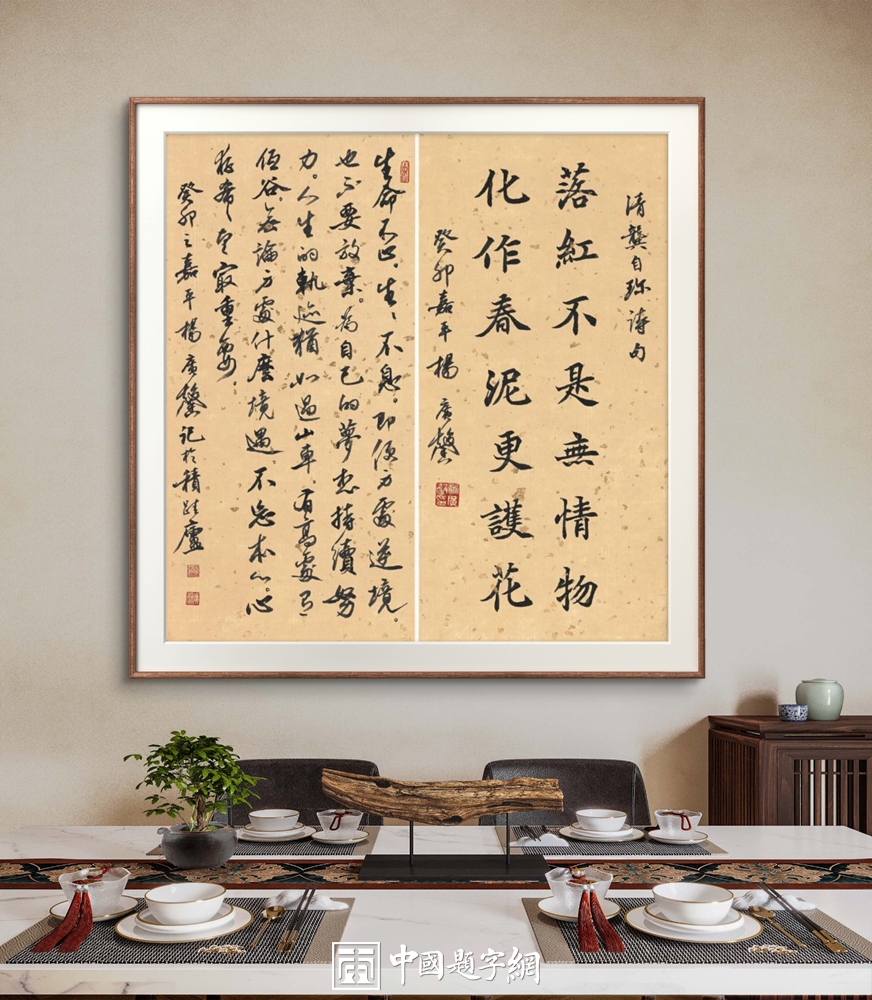 清龔自珎詩句
落紅不是無情物
化作春泥更護花
癸卯嘉平楊广馨
生命不止,生生不息。即便身處逆境。
也不要放棄。为自己的夢想持續努
力。人生的軌迹猶如過山車,有高處有
低谷,無論身處什麽境遇,不忘本心,心
存希望最重要,
癸卯之嘉平楊广馨記於積跬廬
中國題字網